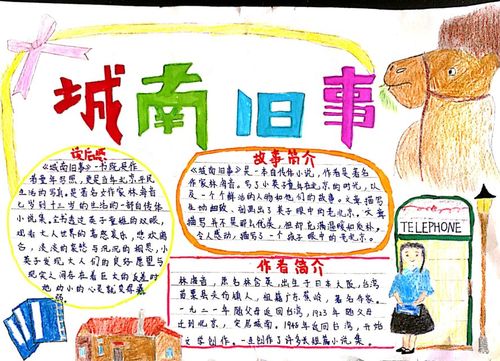 城南旧事
读后感
《城南旧事》一书既是作
者童年写照,更是当年北京平民
生活的写真,是著名女作家林海音
七岁到十三岁的生活的一部自传体
小说集,全书透过英子童稚的双眼,
观看大人世界的喜怒哀乐,悲欢离
合,淡淡的哀愁与沉沉的相思,小
英子发现大人们的良好愿望与
现实人间存在着巨大的反差时
她幼小的心灵就变得
故事简介
《城南旧事》是一本自传体小说,作者是著名
作家林海音。写了小英子童年在北京的时光,以及
一个个鲜活的人物和他们的故事。文章描写
生动细致、刻画出了英子眼中的老北京。文章
描写并不是那么优美,但却充满温暖和质朴,
令人感动,描写了一个孩子眼中的老北京。
作者简介
林海音,原名林含英,出生于日本大阪,台湾
苗栗县头份镇人,祖籍广东蕉岭,著名作家。
一九二一年随父母返回台湾,1923年随父母
迁到北京,定居城南,1948年返回台湾,开始
文学创作。一直创作了许多长短篇小说集。
TELEPHONE